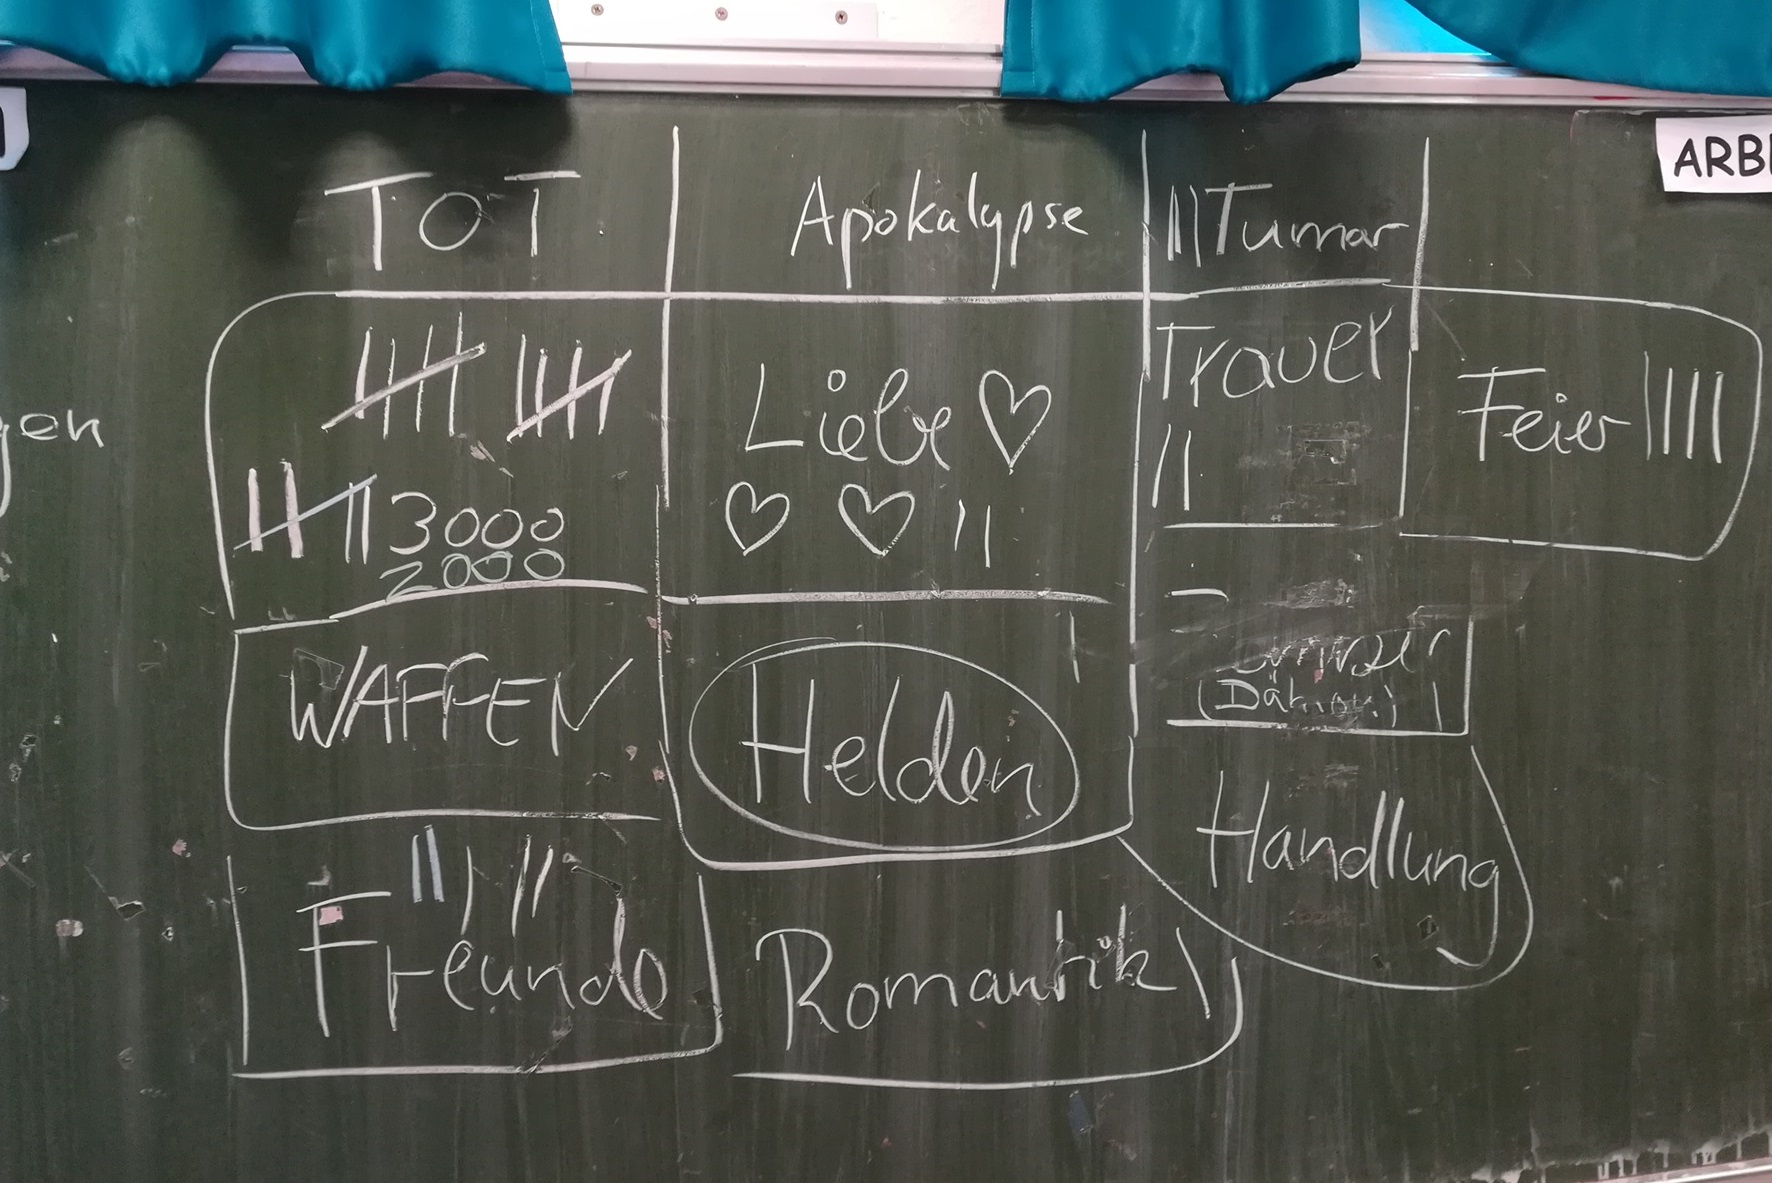 ARB
TOT
Apokalypse
Tumor
Liebe
Trauer
Feier
gen
3000
2000
WAFFEN
Helden
(Dämon)
Handlung
Freunde
Romantik